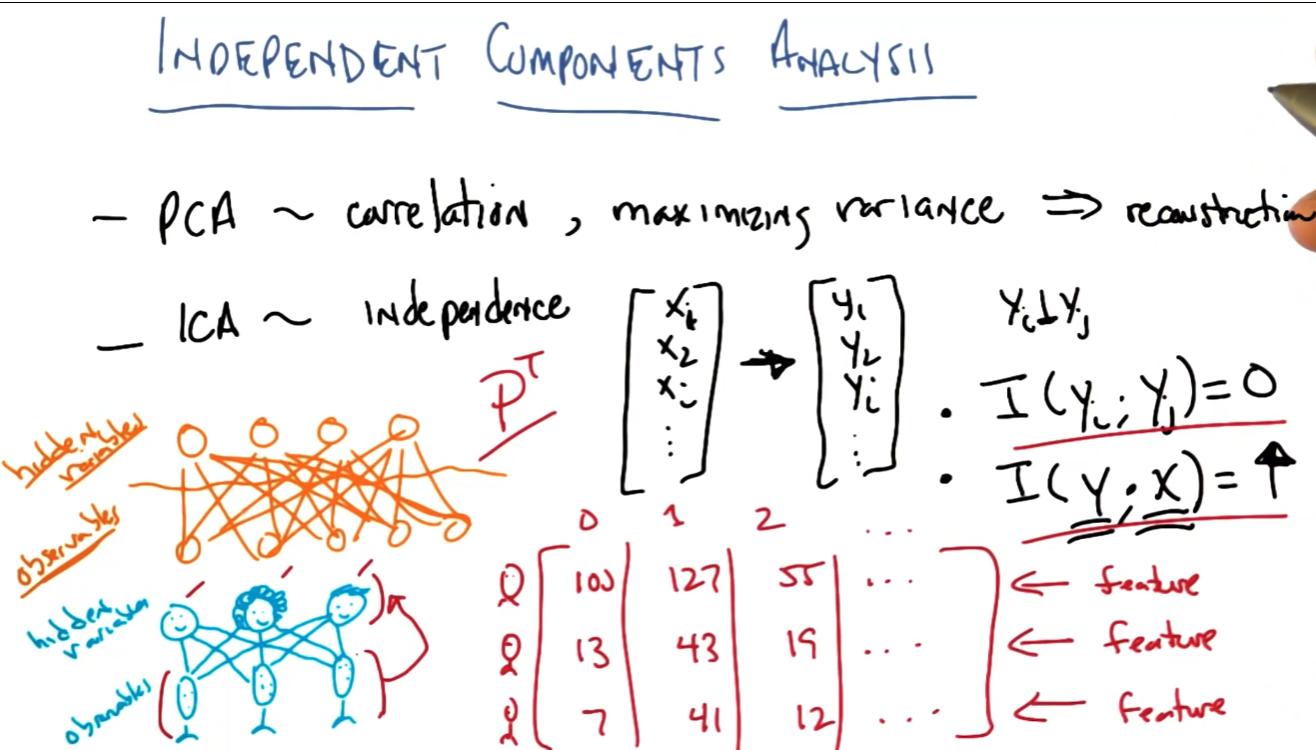 INDEPENDENT COMPONENTS ANALYSIS
– PCA ~ correlation, maximizing variance ⇒ reconstruction
– ICA ~ independence
x₁
x₂
xᵢ
⋮
→
y₁
y₂
yᵢ
⋮
yᵢ ⊥ yⱼ
Pᵀ
• I(yᵢ; yⱼ) = 0
• I(y; x) = ↑
hidden variables
observables
hidden variables
observables
0 1 2 ...
100 127 55 ... ← feature
13 43 19 ... ← feature
7 41 12 ... ← feature